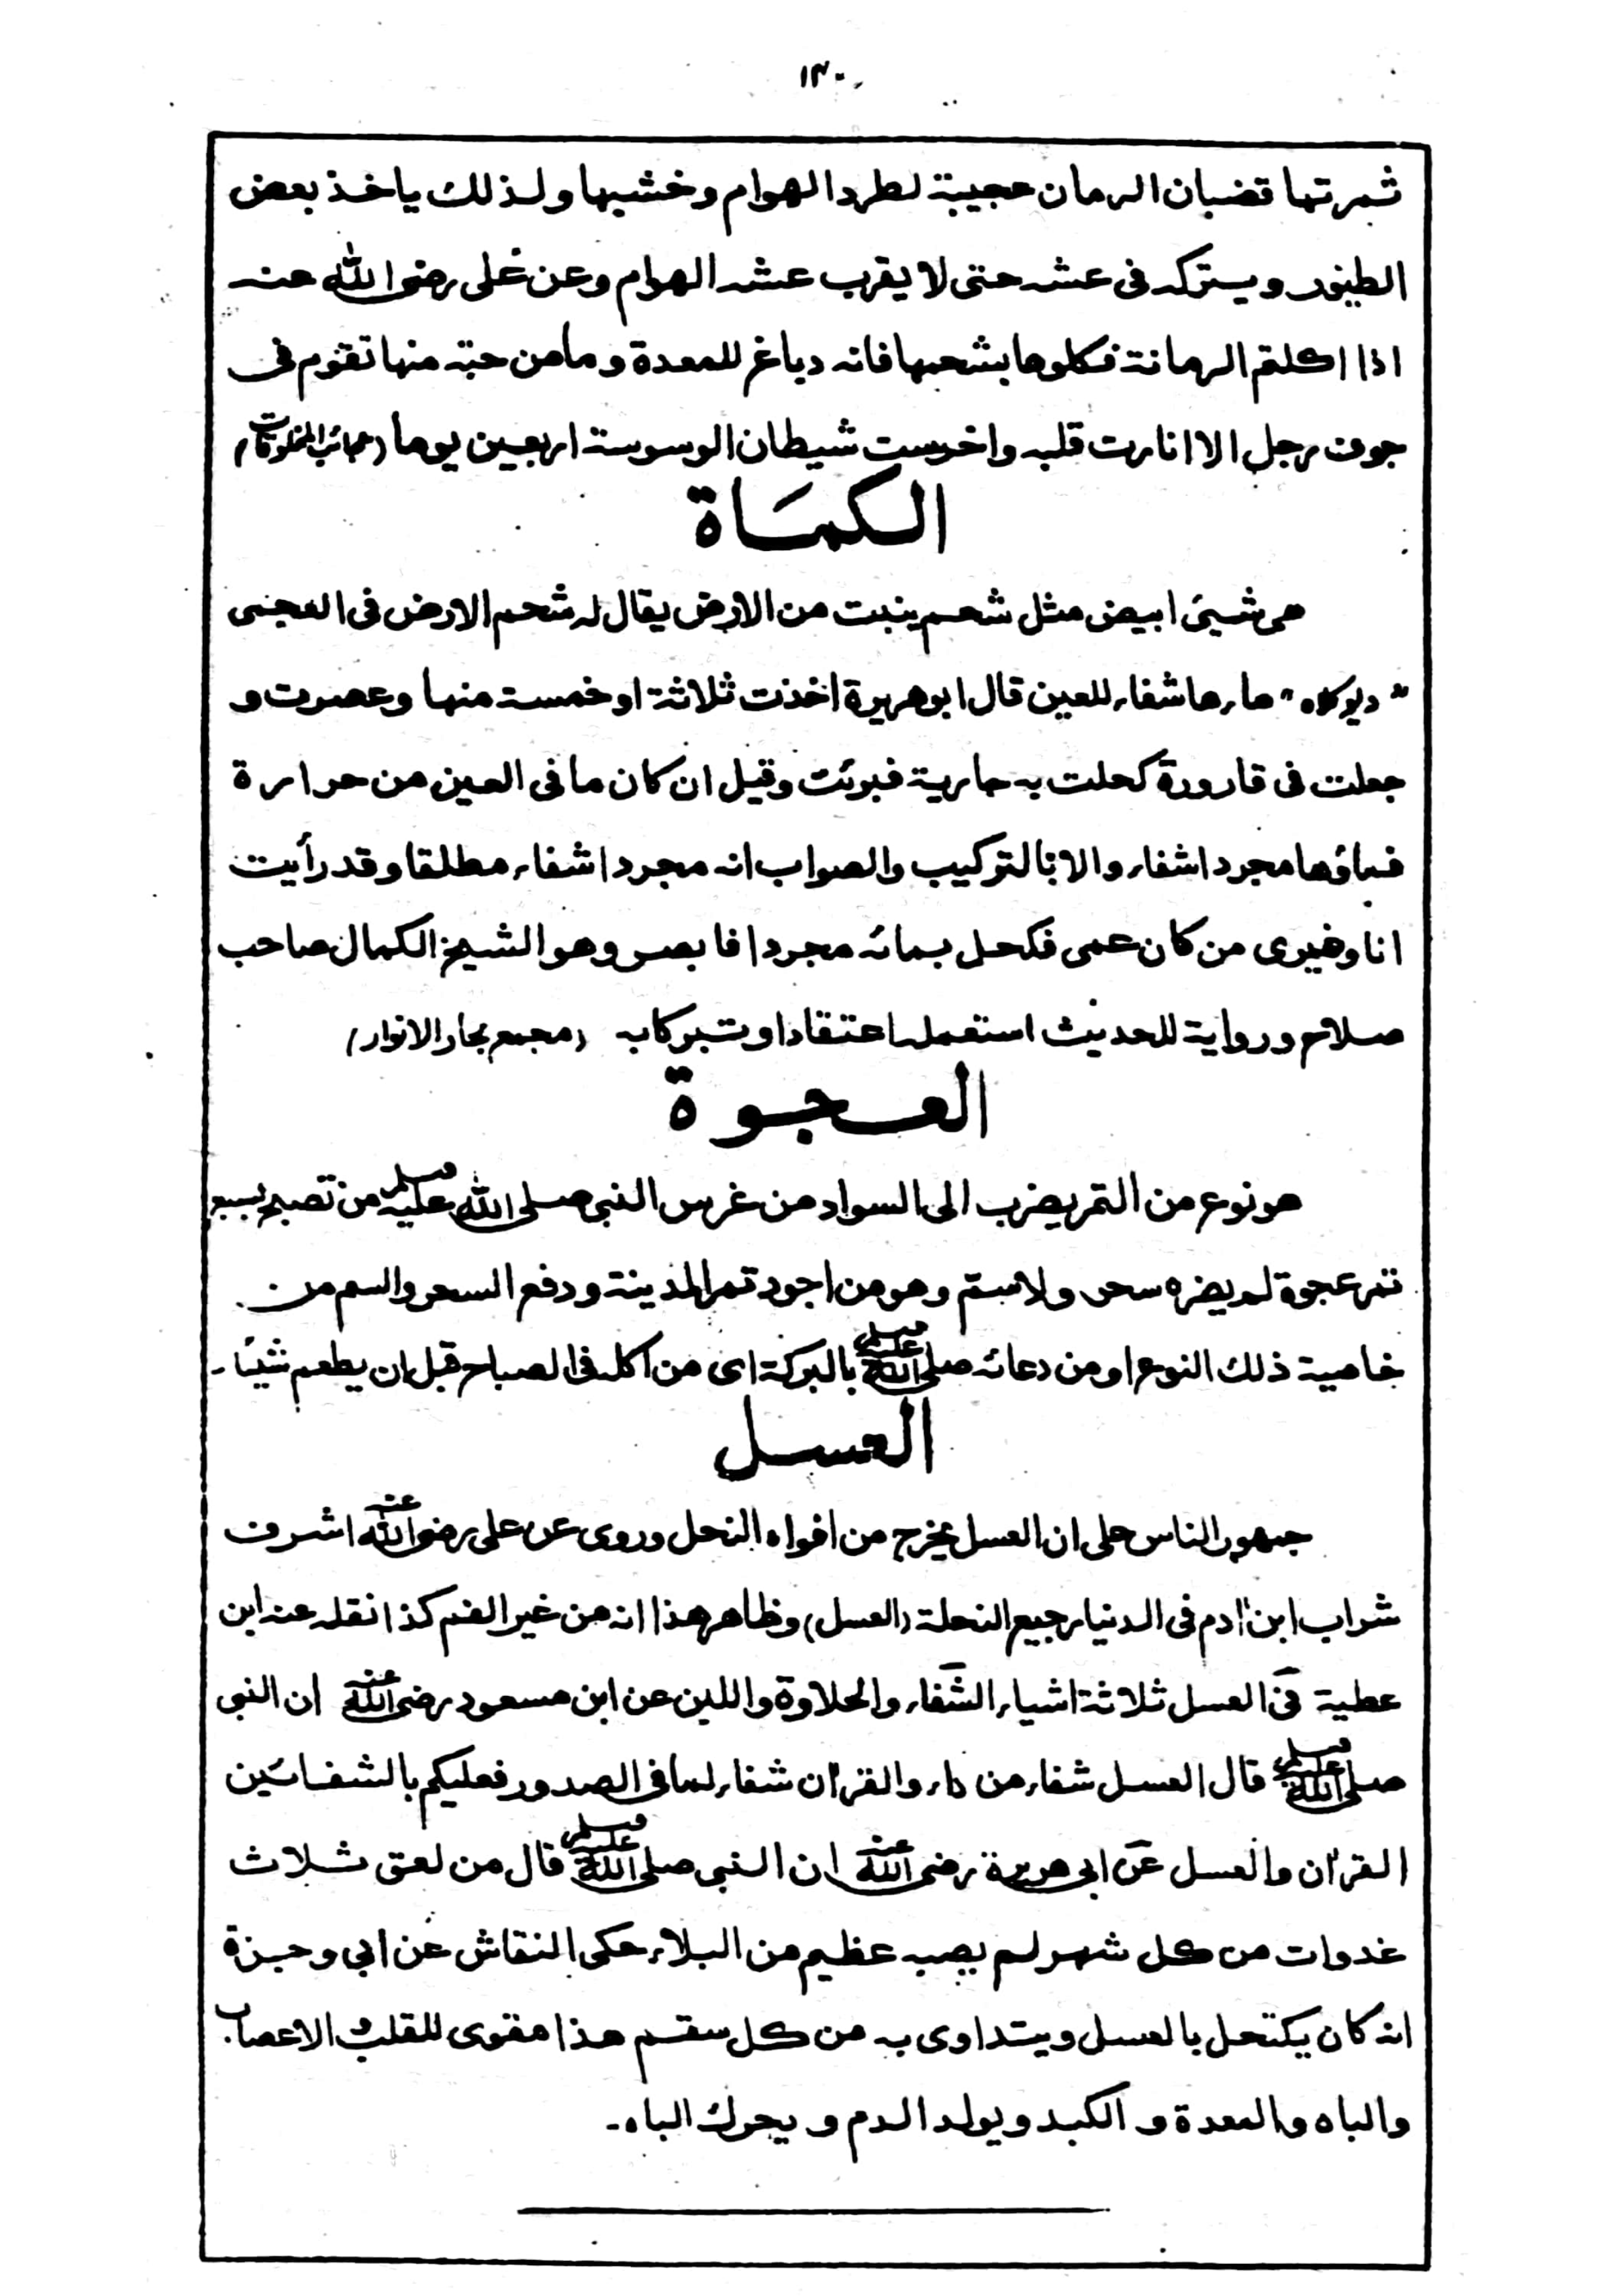 ١٣٠
ثمرتها قضبان الرمان عجيبة لطرد الهوام وخشبها ولذلك ياخذ بعض
الطيور ويتركه فى عشه حتى لا يقرب عشه الهوام وعن على رضى الله عنه
اذا اكلتم الرمانة فكلوها بشحمها فانه دباغ للمعدة وما من حبة منها تقوم فى
جوف رجل الا انارت قلبه واخرست شيطان الوسوسة اربعين يوما (عجائب المخلوقات)
الكمَاة
هى شيئ ابيض مثل شحم ينبت من الارض يقال له شحم الارض فى العجمى
"ديو كلاه" ماءها شفاء للعين قال ابو هريرة اخذت ثلاثة او خمسة منها وعصرت و
جعلت فى قارورة كحلت به جارية فبرئت وقيل ان كان ما فى العين من حرارة
فماؤها مجردا شفاء والا بالتركيب والصواب انه مجردا شفاء مطلقا وقد رأيت
انا وغيرى من كان عمى فكحل بمائه مجردا فابصر وهو الشيخ الكمال صاحب
صلاح ورواية للحديث استعمله اعتقادا وتبركا به (مجمع بحار الانوار)
العجوة
هو نوع من التمر يضرب الى السواد من غرس النبى صلى الله عليه وسلم من تصبح بسبع
تمر عجوة لم يضره سحر ولا سم وهو من اجود تمر المدينة ودفع السحر والسم من
خاصية ذلك النوع او من دعائه صلى الله عليه وسلم بالبركة اى من اكله فى الصباح قبل ان يطعم شيئا-
العسل
جمهور الناس على ان العسل يخرج من افواه النحل وروى عن على رضى الله عنه اشرف
شراب ابن اٰدم فى الدنيا رجيع النحلة (العسل) وظاهر هذا انه من غير الفم كذا نقله عنه ابن
عطية فى العسل ثلاثة اشياء الشفاء والحلاوة واللين عن ابن مسعود رضى الله عنه ان النبى
صلى الله عليه وسلم قال العسل شفاء من داء والقراٰن شفاء لما فى الصدور فعليكم بالشفائين
القراٰن والعسل عن ابى هريرة رضى الله عنه ان النبى صلى الله عليه وسلم قال من لعق ثلاث
غدوات من كل شهر لم يصبه عظيم من البلاء حكى النقاش عن ابى وجزة
انه كان يكتحل بالعسل ويتداوى به من كل سقم هذا مقوى للقلب و الاعصاب
والباه والمعدة و الكبد ويولد الدم و يحرك الباه-